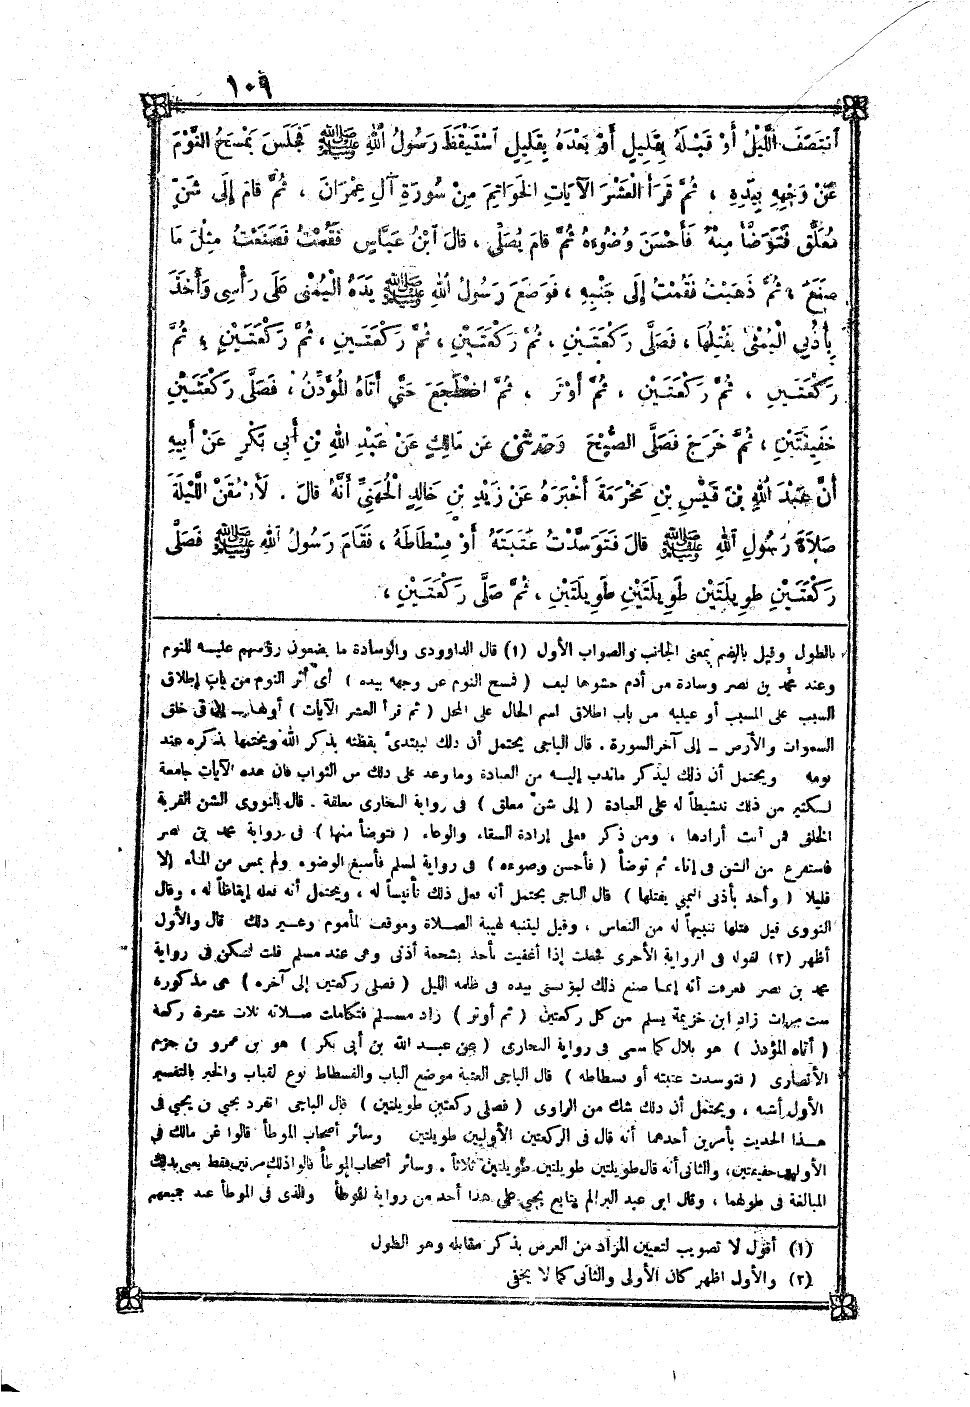 ١٠٩
ٱنْتَصَفَ اللَّيْلُ أَوْ قَبْلَهُ بِقَلِيلٍ أَوْ بَعْدَهُ بِقَلِيلٍ ٱسْتَيْقَظَ رَسُولُ ٱللهِ ﷺ فَجَلَسَ يَمْسَحُ النَّوْمَ
عَنْ وَجْهِهِ بِيَدِهِ ، ثُمَّ قَرَأَ الْعَشْرَ الْآيَاتِ الْخَوَاتِيمَ مِنْ سُورَةِ آلِ عِمْرَانَ ، ثُمَّ قَامَ إِلَى شَنٍّ
مُعَلَّقٍ فَتَوَضَّأَ مِنْهُ فَأَحْسَنَ وُضُوءَهُ ثُمَّ قَامَ يُصَلِّي ، قَالَ ٱبْنُ عَبَّاسٍ فَقُمْتُ فَصَنَعْتُ مِثْلَ مَا
صَنَعَ ، ثُمَّ ذَهَبْتُ فَقُمْتُ إِلَى جَنْبِهِ ، فَوَضَعَ رَسُولُ ٱللهِ ﷺ يَدَهُ الْيُمْنَى عَلَى رَأْسِي وَأَخَذَ
بِأُذُنِي الْيُمْنَى يَفْتِلُهَا ، فَصَلَّى رَكْعَتَيْنِ ، ثُمَّ رَكْعَتَيْنِ ، ثُمَّ رَكْعَتَيْنِ ، ثُمَّ رَكْعَتَيْنِ ، ثُمَّ
رَكْعَتَيْنِ ، ثُمَّ رَكْعَتَيْنِ ، ثُمَّ أَوْتَرَ ، ثُمَّ اضْطَجَعَ حَتَّى أَتَاهُ الْمُؤَذِّنُ ، فَصَلَّى رَكْعَتَيْنِ
خَفِيفَتَيْنِ ، ثُمَّ خَرَجَ فَصَلَّى الصُّبْحَ وَحَدَّثَنِي عَنْ مَالِكٍ عَنْ عَبْدِ اللهِ بْنِ أَبِي بَكْرٍ عَنْ أَبِيهِ
أَنَّ عَبْدَ اللهِ بْنَ قَيْسِ بْنِ مَخْرَمَةَ أَخْبَرَهُ عَنْ زَيْدِ بْنِ خَالِدٍ الْجُهَنِيِّ أَنَّهُ قَالَ . لَأَرْمُقَنَّ اللَّيْلَةَ
صَلَاةَ رَسُولِ ٱللهِ ﷺ قَالَ فَتَوَسَّدْتُ عَتَبَتَهُ أَوْ فُسْطَاطَهُ ، فَقَامَ رَسُولُ ٱللهِ ﷺ فَصَلَّى
رَكْعَتَيْنِ طَوِيلَتَيْنِ طَوِيلَتَيْنِ طَوِيلَتَيْنِ ، ثُمَّ صَلَّى رَكْعَتَيْنِ ،
بالطول وقيل بالضم بمعنى الجانب والصواب الأول (١) قال الداوودى والوسادة ما يضعون رؤسهم عليه للنوم
وعند محمد بن نصر وسادة من أدم حشوها ليف ( فمسح النوم عن وجهه بيده ) أى أثر النوم من باب إطلاق
السبب على المسبب أو عينيه من باب اطلاق اسم الحال على المحل ( ثم قرأ العشر الآيات ) أولها ــ إن فى خلق
السموات والأرض ــ إلى آخر السورة . قال الباجى يحتمل أن ذلك ليبتدئ يقظته بذكر الله ويختمها بذكره عند
نومه ويحتمل أن ذلك ليذكر ماندب إليه من العبادة وما وعد على ذلك من الثواب فان هذه الآيات جامعة
لكثير من ذلك تنشيطاً له على العبادة ( إلى شن معلق ) فى رواية البخارى معلقة . قال النووى الشن القربة
الخلق فمن أنث أرادها ، ومن ذكر فعلى إرادة السقاء والوعاء ( فتوضأ منها ) فى رواية محمد بن نصر
فاستفرغ من الشن فى إناء ثم توضأ ( فأحسن وضوءه ) فى رواية لمسلم فأسبغ الوضوء ولم يمس من الماء إلا
قليلا ( وأخذ بأذنى اليمنى يفتلها ) قال الباجى يحتمل أنه فعل ذلك تأنيساً له ، ويحتمل أنه فعله إيقاظاً له ، وقال
النووى قيل فتلها تنبيهاً له من النعاس ، وقيل ليتنبه لهيئة الصلاة وموقف المأموم وغير ذلك قال والأول
أظهر (٢) لقوله فى الرواية الأخرى فجعلت إذا أغفيت يأخذ بشحمة أذنى وهى عند مسلم قلت لكن فى رواية
محمد بن نصر فعرفت أنه إنما صنع ذلك ليؤنسنى بيده فى ظلمة الليل ( فصلى ركعتين إلى آخره ) هى مذكورة
ست مرات زاد ابن خزيمة يسلم من كل ركعتين ( ثم أوتر ) زاد مسلم فتكاملت صلاته ثلاث عشرة ركعة
( أتاه المؤذن ) هو بلال كما سمى فى رواية البخارى ( عن عبد الله بن أبى بكر ) هو بن عمرو بن حزم
الأنصارى ( فتوسدت عتبته أو فسطاطه ) قال الباجى العتبة موضع الباب والفسطاط نوع القباب والخبر بالتفسير
الأول أشبه ، ويحتمل أن ذلك شك من الراوى ( فصلى ركعتين طويلتين ) قال الباجى انفرد يحيى بن يحيى فى
هذا الحديث بأمرين أحدهما أنه قال فى الركعتين الأوليين طويلتين وسائر أصحاب الموطأ قالوا عن مالك فى
الأوليين خفيفتين، والثانى أنه قال طويلتين طويلتين طويلتين ثلاثاً . وسائر أصحاب الموطأ قالوا ذلك مرتين فقط يعنى بذلك
المبالغة فى طولهما ، وقال ابن عبد البر لم يتابع يحيى على هذا أحد من رواية الموطأ والذى فى الموطأ عند جميعهم
(١) أقول لا تصويب لتعيين المراد من العرض بذكر مقابله وهو الطول
(٢) والأول اظهر كان الأولى والثانى كما لا يخفى